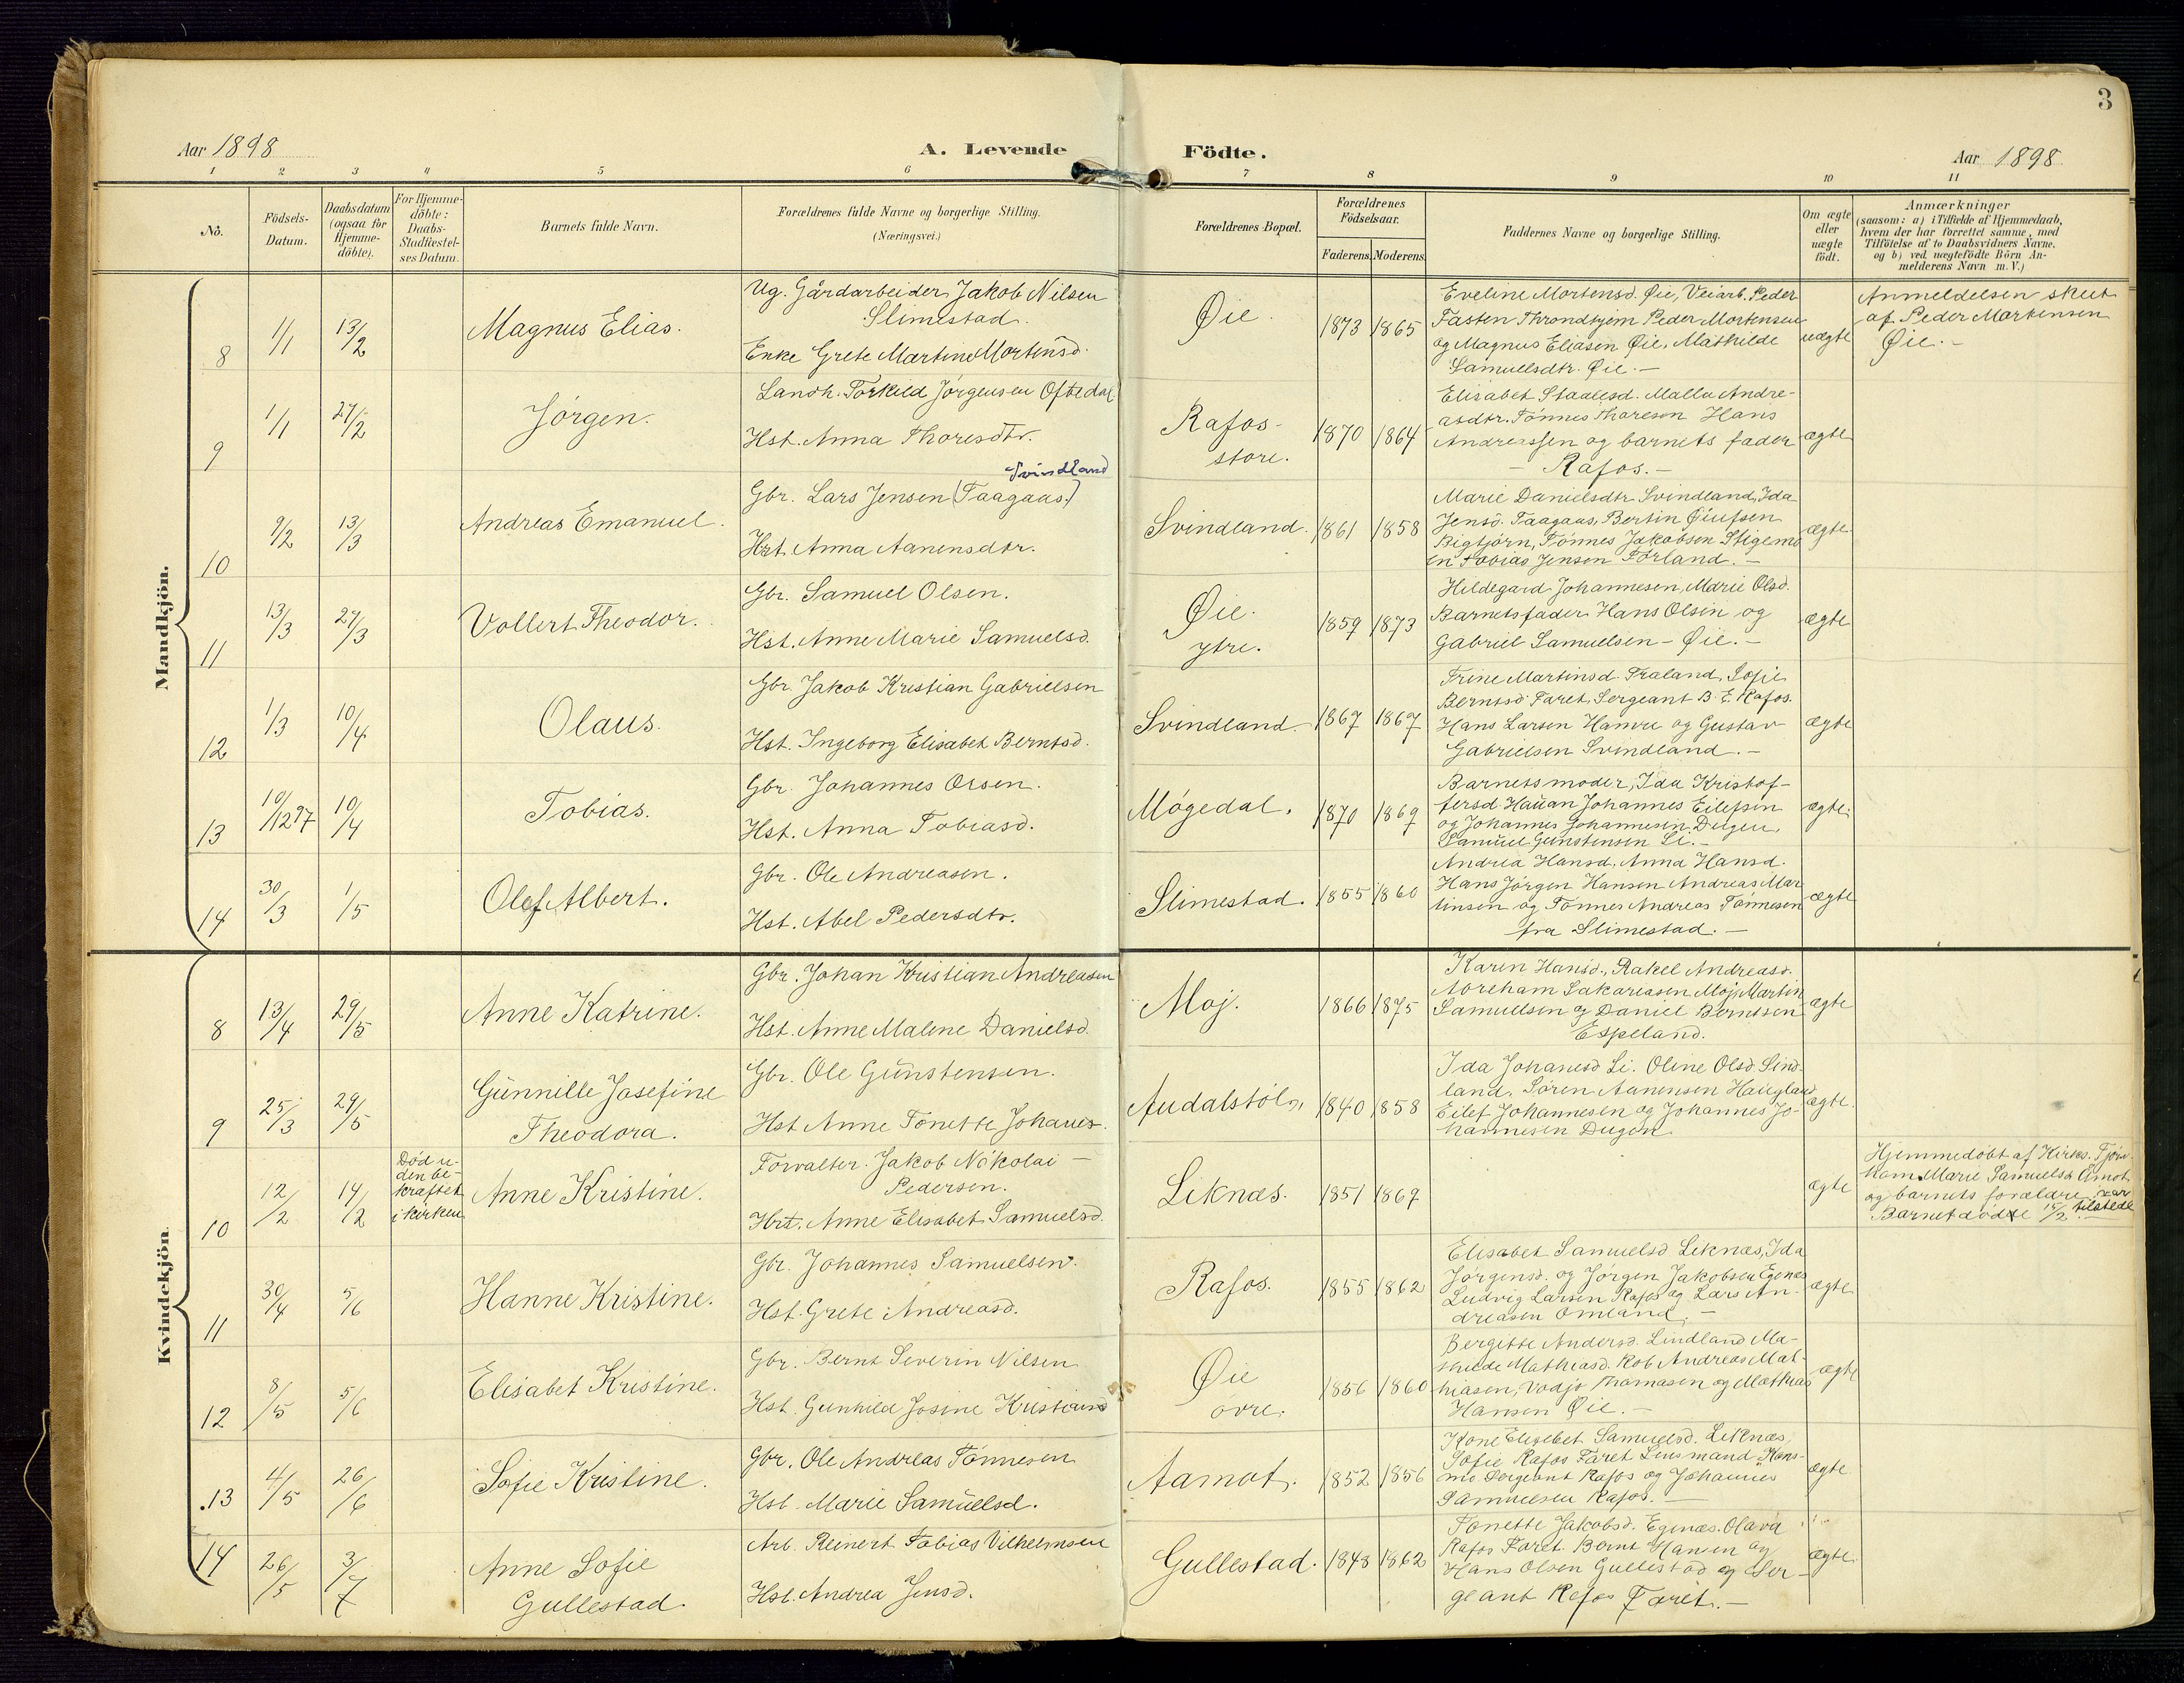 3
Aar 1898
A. Levende Födte.
Aar 1898
1 2 3 4 5 6 7 8 9 10 11
No.
Födsels-Datum.
Daabsdatum (ogsaa for Hjemme-döbte).
For Hjemme-döbte: Daabs-Stadfæstel-ses Datum.
Barnets fulde Navn.
Forældrenes fulde Navne og borgerlige Stilling.
(Næringsvei.)
Forældrenes Bopæl.
Forældrenes Födselsaar.
Faderens. Moderens.
Faddernes Navne og borgerlige Stilling.
Om ægte eller uægte födt.
Anmærkninger
(saasom: a) i Tilfælde af Hjemmedaab,
hvem der har forrettet samme, med
Tilföielse af to Daabsvidners Navne.
og b) ved uægtefödte Börn An-
melderens Navn m. V.)
Mandkjön.
8 1/1 13/2 Magnus Elias.
Ug. Gårdarbeider Jakob Nilsen
Slimestad.
Enke Grete Martine Mortensd.
Øie. 1873 1865
Eveline Mortensd. Øie, Veiarb. Peder
Fasten Throndhjem Peder Mortensen
og Magnus Eliasen Øie, Mathilde
Samuelsdtr. Øie.-
uægte
Anmeldelsen skeet
af Peder Mortensen
Øie.-
9 1/1 27/2 Jörgen.
Landh. Torkild Jörgensen Oftedal
Hst. Anna Thoresdtr.
Rafos-
store.
1870 1864
Elisabet Staalesd. Malla Andre-
asdtr. Tönnes Thoresen Hans
Andreassen og barnets fader
- Rafos.-
ægte
10 9/2 13/3 Andreas Emanuel.
Svindland
Gbr. Lars Jensen (Taagaas.)
Hst. Anna Aanensdtr.
Svindland. 1861 1858
Marie Danielsdtr Svindland, Ida
Jensd. Taagaas, Bertin Öiufsen
Bigtjörn, Tönnes Jakobsen Stigemo
en Tobias Jensen Förland.-
ægte
11 13/3 27/3 Vollert Theodor.
Gbr. Samuel Olsen.
Hst. Anne Marie Samuelsd.
Øie.
ytre.
1859 1873
Hildegard Johannesen, Marie Olsd.
Barnets fader Hans Olsen og
Gabriel Samuelsen - Øie.-
ægte
12 1/3 10/4 Olaus.
Gbr. Jakob Kristian Gabrielsen
Hst. Ingeborg Elisabet Berntsd.
Svindland. 1867 1867
Trine Martinsd. Traland, Sofie
Berntsd. Faret, Sergeant B. E. Rafos.
Hans Larsen Hamre og Gustav
Gabrielsen Svindland.-
ægte
13 10/12 97 10/4 Tobias.
Gbr. Johannes Orsen.
Hst. Anna Tobiasd.
Mögedal. 1870 1869
Barnets moder, Ida Kristof-
fersd Hauan Johannes Eilefsen
og Johannes Johannesen Dugen,
Samuel Gunstensen Li.-
ægte.
14 30/3 1/5 Olef Albert.
Gbr. Ole Andreasen.
Hst. Abel Pedersdtr.
Slimestad. 1855 1860
Andrea Hansd, Anna Hansd.
Hans Jörgen Hansen Andreas Mar
tinsen og Tönnes Andreas Tönnesen
fra Slimestad.-
ægte
Kvindekjön.
8 13/4 29/5 Anne Katrine.
Gbr. Johan Kristian Andreasen
Hst. Anne Malene Danielsd.
Moj. 1866 1875
Karen Hansd., Rakel Andreasd.
Abreham Sakariasen Moj, Martin
Samuelsen og Daniel Berntsen
Espeland.
ægte
9 25/3 29/5 Günnille Josefine
Theodora.
Gbr. Ole Günstensen.
Hst. Anne Tonette Johanes.
Audalstöl. 1840 1858
Ida Johanesd Li. Oline Olsd. Sind-
land, Sören Aanensen Haugland
Eilef Johannesen og Johannes Jo-
hannesen Dugen
ægte.
10 12/2 14/2
Död u-
den be-
kræftet
i kirken
Anne Kristine.
Forvalter Jakob Nikolai -
Pedersen.
Hst. Anne Elisabet Samuelsd.
Liknæs. 1851 1867
ægte
Hjemmedöbt af Kirks. Tjörn-
ham. Marie Samuelsd. Åmot
og barnets forældre var
Barnet döde 15/2. tilstede
11 30/4 5/6 Hanne Kristine.
Gbr. Johannes Samuelsen.
Hst. Grete Andreasd.
Rafos. 1855 1862
Elisabet Samuelsd Liknæs, Ida
Jörgensd. og Jörgen Jakobsen Egenæs
Ludvig Larsen Rafos og Lars An-
dreasen Omland.-
ægte
12 8/5 5/6 Elisabet Kristine.
Gbr. Bernt Severin Nilsen
Hst. Gunhild Josine Kristiansd
Øie
övre.
1856 1860
Bergitte Andersd. Lindland Ma-
thilde Mathiasd. Rob. Andreas Mat-
hiasen, Vodjo Thomasen og Mathias
Hansen Øie.-
ægte
13 4/5 26/6 Sofie Kristine.
Gbr. Ole Andreas Tönnesen
Hst. Marie Samüelsd.
Aamot. 1852 1856
Kone Elisebet Samuelsd. Liknæs,
Sofie Rafos Faret Lensmand Hans-
mo Sergeant Rafos og Johannes
Samuelsen Rafos.-
ægte
14 26/5 3/7 Anne Sofie
Gullestad.
Arb. Reinert Tobias Vilhelmsen
Hst. Andrea Jensd.
Gullestad. 1848 1862
Tonette Jakobsd. Egenæs. Olava
Rafos Faret Bernt Hansen og
Hans Olsen Gullestad og Ser-
geant Rafos Faret.-
ægte.